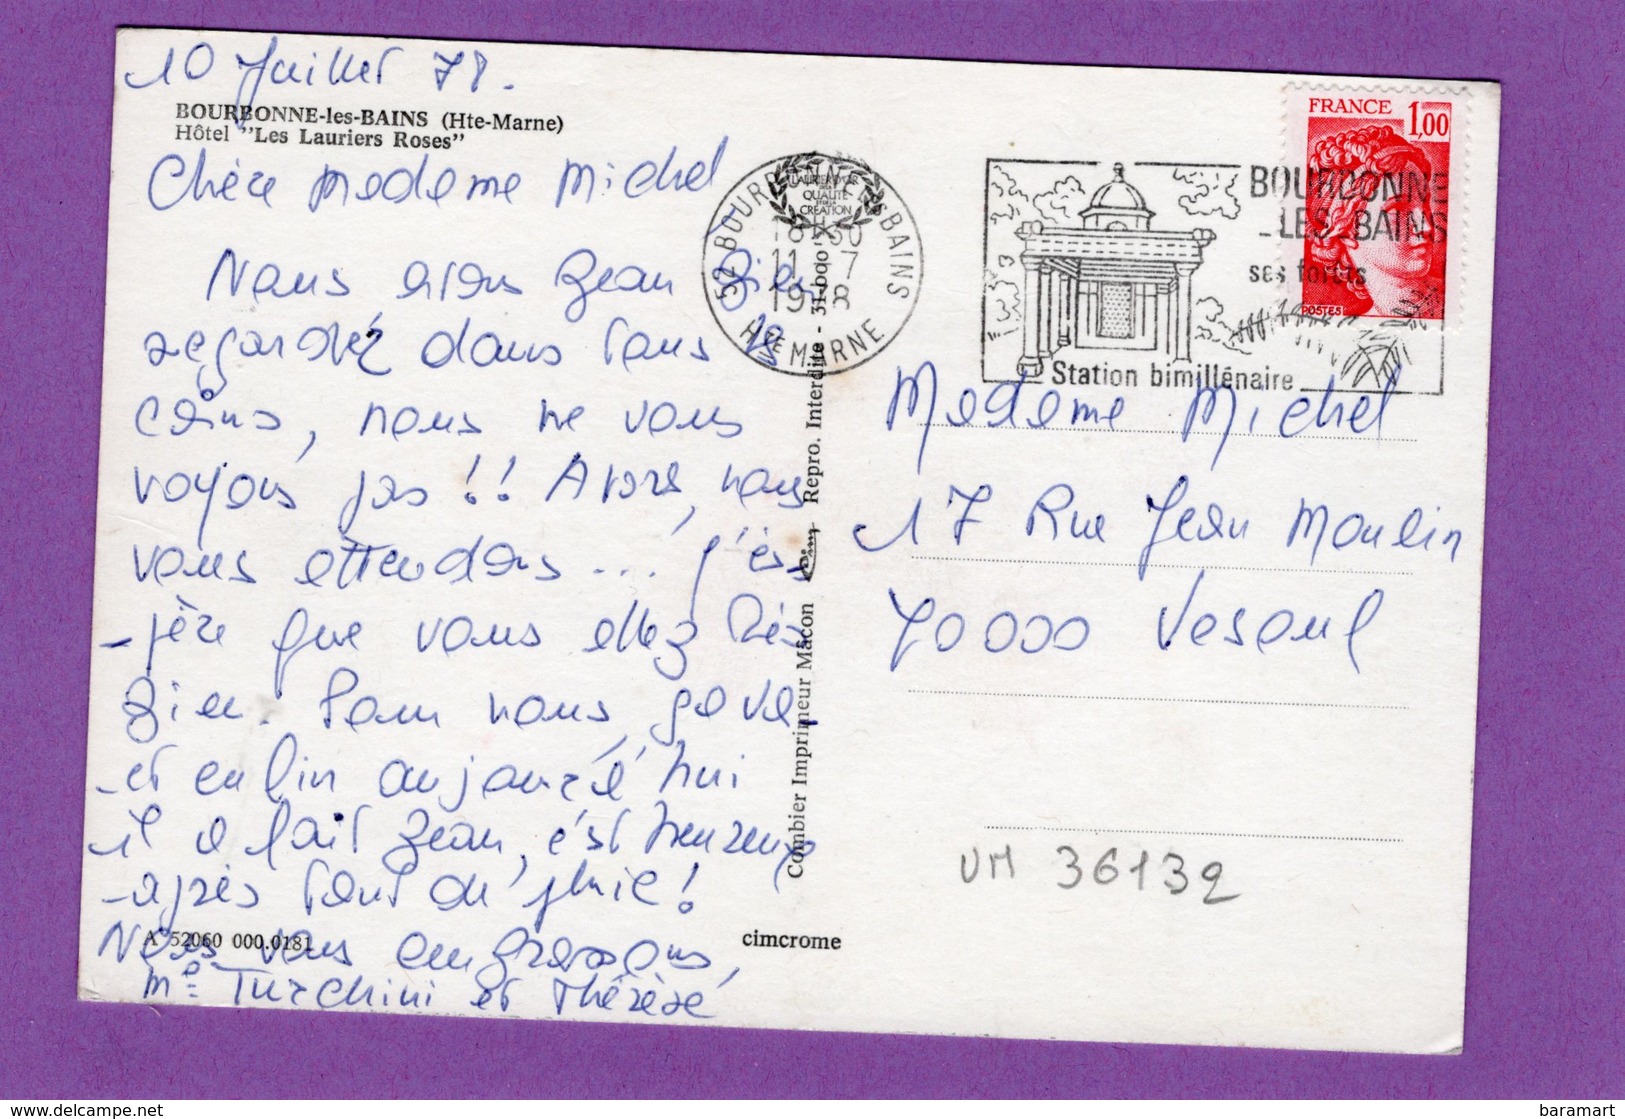 10 Juillet 78.
BOURBONNE-les-BAINS (Hte-Marne)
Hôtel "Les Lauriers Roses"
Chère Madame Michel
Nous avons beau bien
regardé dans tous les
coins, nous ne vous
voyons pas !! Alors, nous
vous attendons ... j'es
-père que vous allez très
bien. Pour nous, ça va
-et enfin aujourd'hui
il a fait beau, c'est heureux
-après tant de pluie !
A 52060 000.0181
cimcrome
Nous vous embrassons,
Me Turchini et Thérèse
Combier Imprimeur Mâcon Repro. Interdite - 31-
LAURIER D'OR
DE LA
QUALITÉ
CRÉATION
52 BOURBONNE LES BAINS
11 - 7
1978
HTE MARNE
BOURBONNE
_LES BAINS
ses forêts
Station bimillénaire
FRANCE 1,00
POSTES
Madame Michel
17 Rue Jean Moulin
70000 Vesoul
VM 36132
baramart